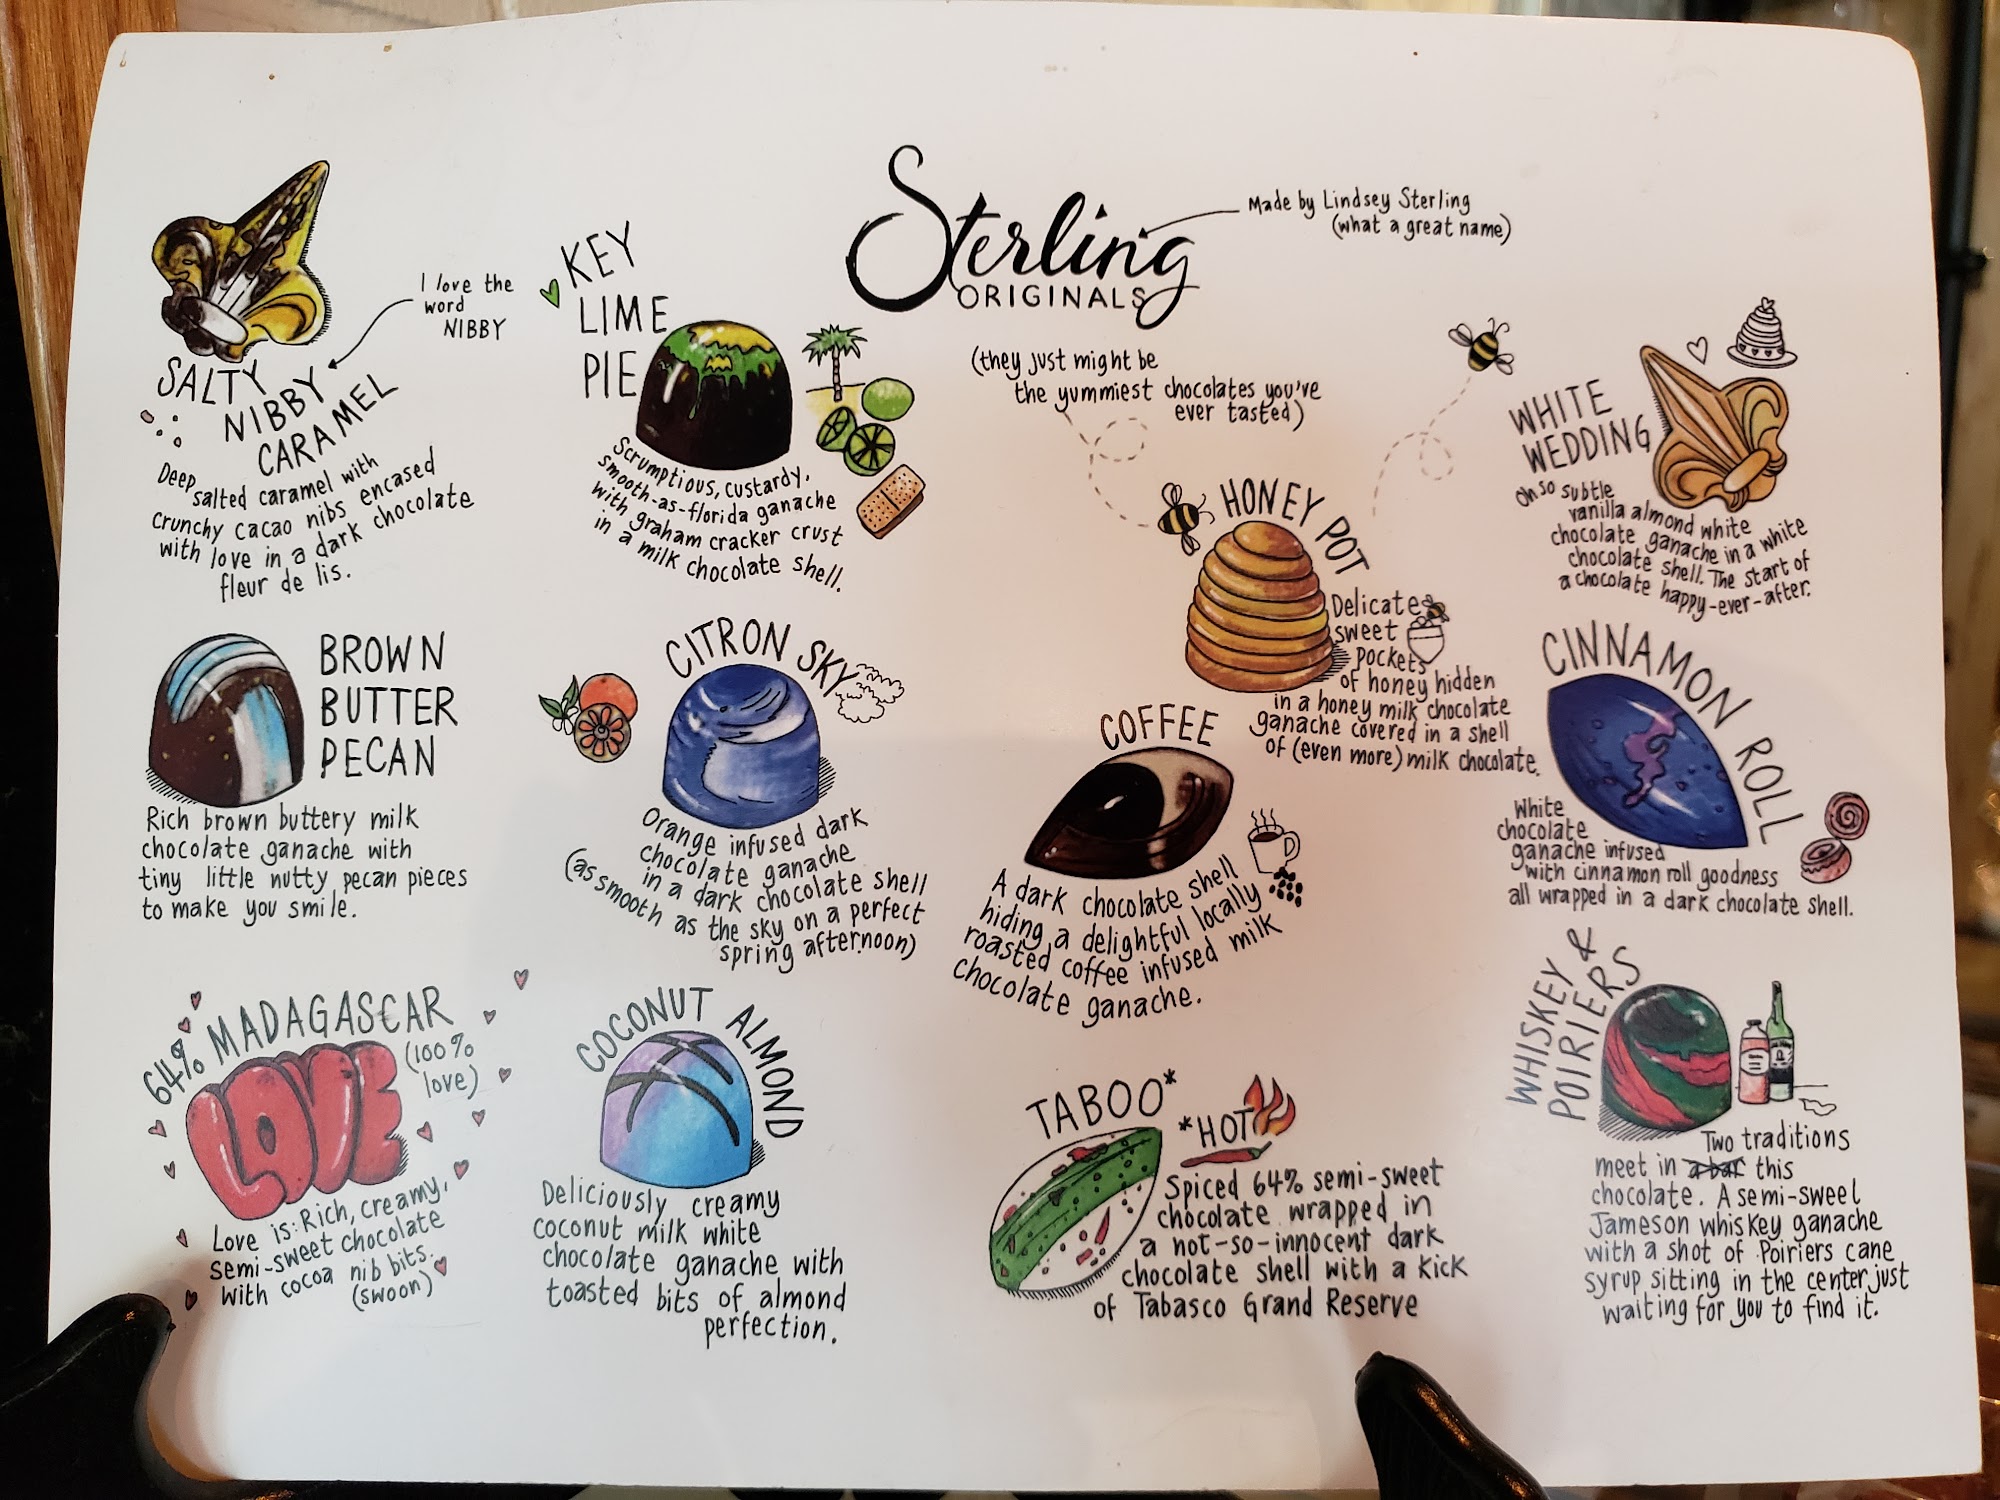 Sterling
ORIGINALS
Made by Lindsey Sterling
(what a great name)
(they just might be
the yummiest chocolates you've
ever tasted)
I love the
word
NIBBY
SALTY
NIBBY
CARAMEL
Deep salted caramel with
crunchy cacao nibs encased
with love in a dark chocolate
fleur de lis.
KEY
LIME
PIE
Scrumptious, custardy,
smooth-as-florida ganache
with graham cracker crust
in a milk chocolate shell.
HONEY POT
Delicate
sweet
pockets
of honey hidden
in a honey milk chocolate
ganache covered in a shell
of (even more) milk chocolate.
WHITE
WEDDING
Oh so subtle
vanilla almond white
chocolate ganache in a white
chocolate shell. The start of
a chocolate happy-ever-after.
BROWN
BUTTER
PECAN
Rich brown buttery milk
chocolate ganache with
tiny little nutty pecan pieces
to make you smile.
CITRON SKY
Orange infused dark
chocolate ganache
in a dark chocolate shell
(as smooth as the sky on a perfect
spring afternoon)
COFFEE
A dark chocolate shell
hiding a delightful locally
roasted coffee infused milk
chocolate ganache.
CINNAMON ROLL
White
chocolate
ganache infused
with cinnamon roll goodness
all wrapped in a dark chocolate shell.
64% MADAGASCAR
(100%
love)
LOVE
Love is: Rich, creamy,
semi-sweet chocolate
with cocoa nib bits.
(swoon)
COCONUT ALMOND
Deliciously creamy
coconut milk white
chocolate ganache with
toasted bits of almond
perfection.
TABOO*
*HOT
Spiced 64% semi-sweet
chocolate wrapped in
a not-so-innocent dark
chocolate shell with a kick
of Tabasco Grand Reserve
WHISKEY &
POIRIERS
Two traditions
meet in a bar this
chocolate. A semi-sweet
Jameson whiskey ganache
with a shot of Poiriers cane
syrup sitting in the center just
waiting for you to find it.